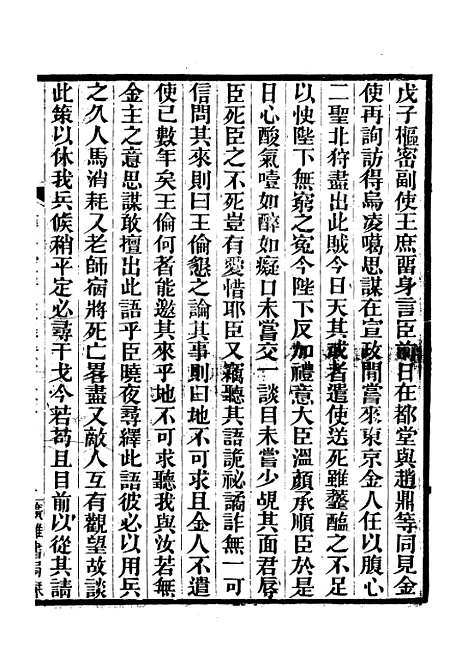 戊子樞密副使王庶畱身言臣前日在都堂與趙鼎等同見金
使再詢訪得烏凌噶思謀在宣政閒嘗來東京金人任以腹心
二聖北狩盡出此賊今日天其或者遣使送死雖虀醢之不足
以快陛下無窮之冤今陛下反加禮意大臣溫顏承順臣於是
日心酸氣噎如醉如癡口未嘗交一談目未嘗少覘其面君辱
臣死臣之不死豈有愛惜耶臣又竊聽其語詭祕譎詐無一可
信問其來則曰王倫懇之論其事則曰地不可求且金人不遣
使已數年矣王倫何者能邀其來乎地不可求聽我與汝若無
金主之意思謀敢擅出此語乎臣曉夜尋繹此語彼必以用兵
之久人馬消耗又老師宿將死亡畧盡又敵人互有觀望故談
此策以休我兵候稍平定必尋干戈今若苟且目前以從其請